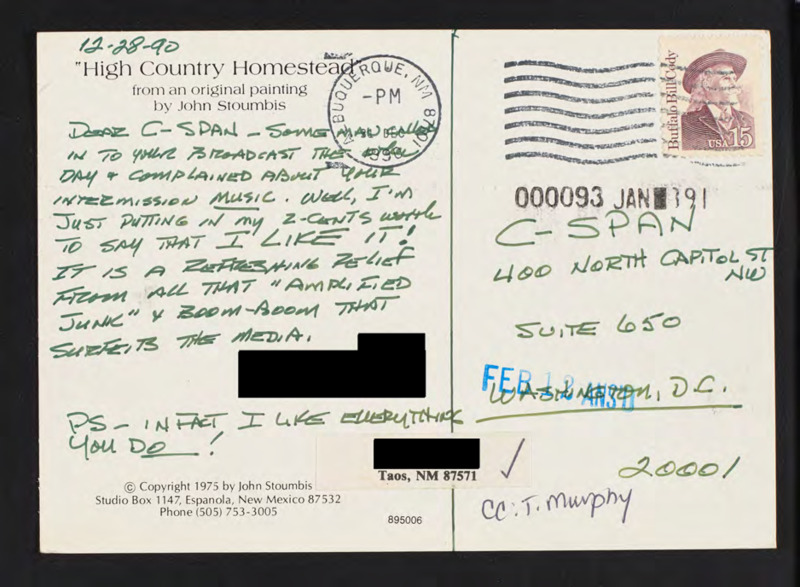 12-28-90
"High Country Homestead"
from an original painting
by John Stoumbis
DEAR C-SPAN - SOME MAN
IN TO YOUR BROADCAST THE
DAY & COMPLAINED ABOUT YOUR
INTERMISSION MUSIC. WELL, I'M
JUST PUTTING IN MY 2-CENTS WORTH
TO SAY THAT I LIKE IT!
IT IS A REFRESHING RELIEF
FROM ALL THAT "AMPLIFIED
JUNK" & BOOM-BOOM THAT
SURFEITS THE MEDIA.
PS - IN FACT I LIKE EVERYTHING
YOU DO!
Taos, NM 87571
© Copyright 1975 by John Stoumbis
Studio Box 1147, Espanola, New Mexico 87532
Phone (505) 753-3005
895006
ALBUQUERQUE, NM 87101
-PM
1990
Buffalo Bill Cody
USA 15
000093 JAN 91
C-SPAN
400 NORTH CAPITOL ST
NW
SUITE 650
FEB 12 ANS'D
WASHINGTON, D.C.
20001
CC: T. Murphy